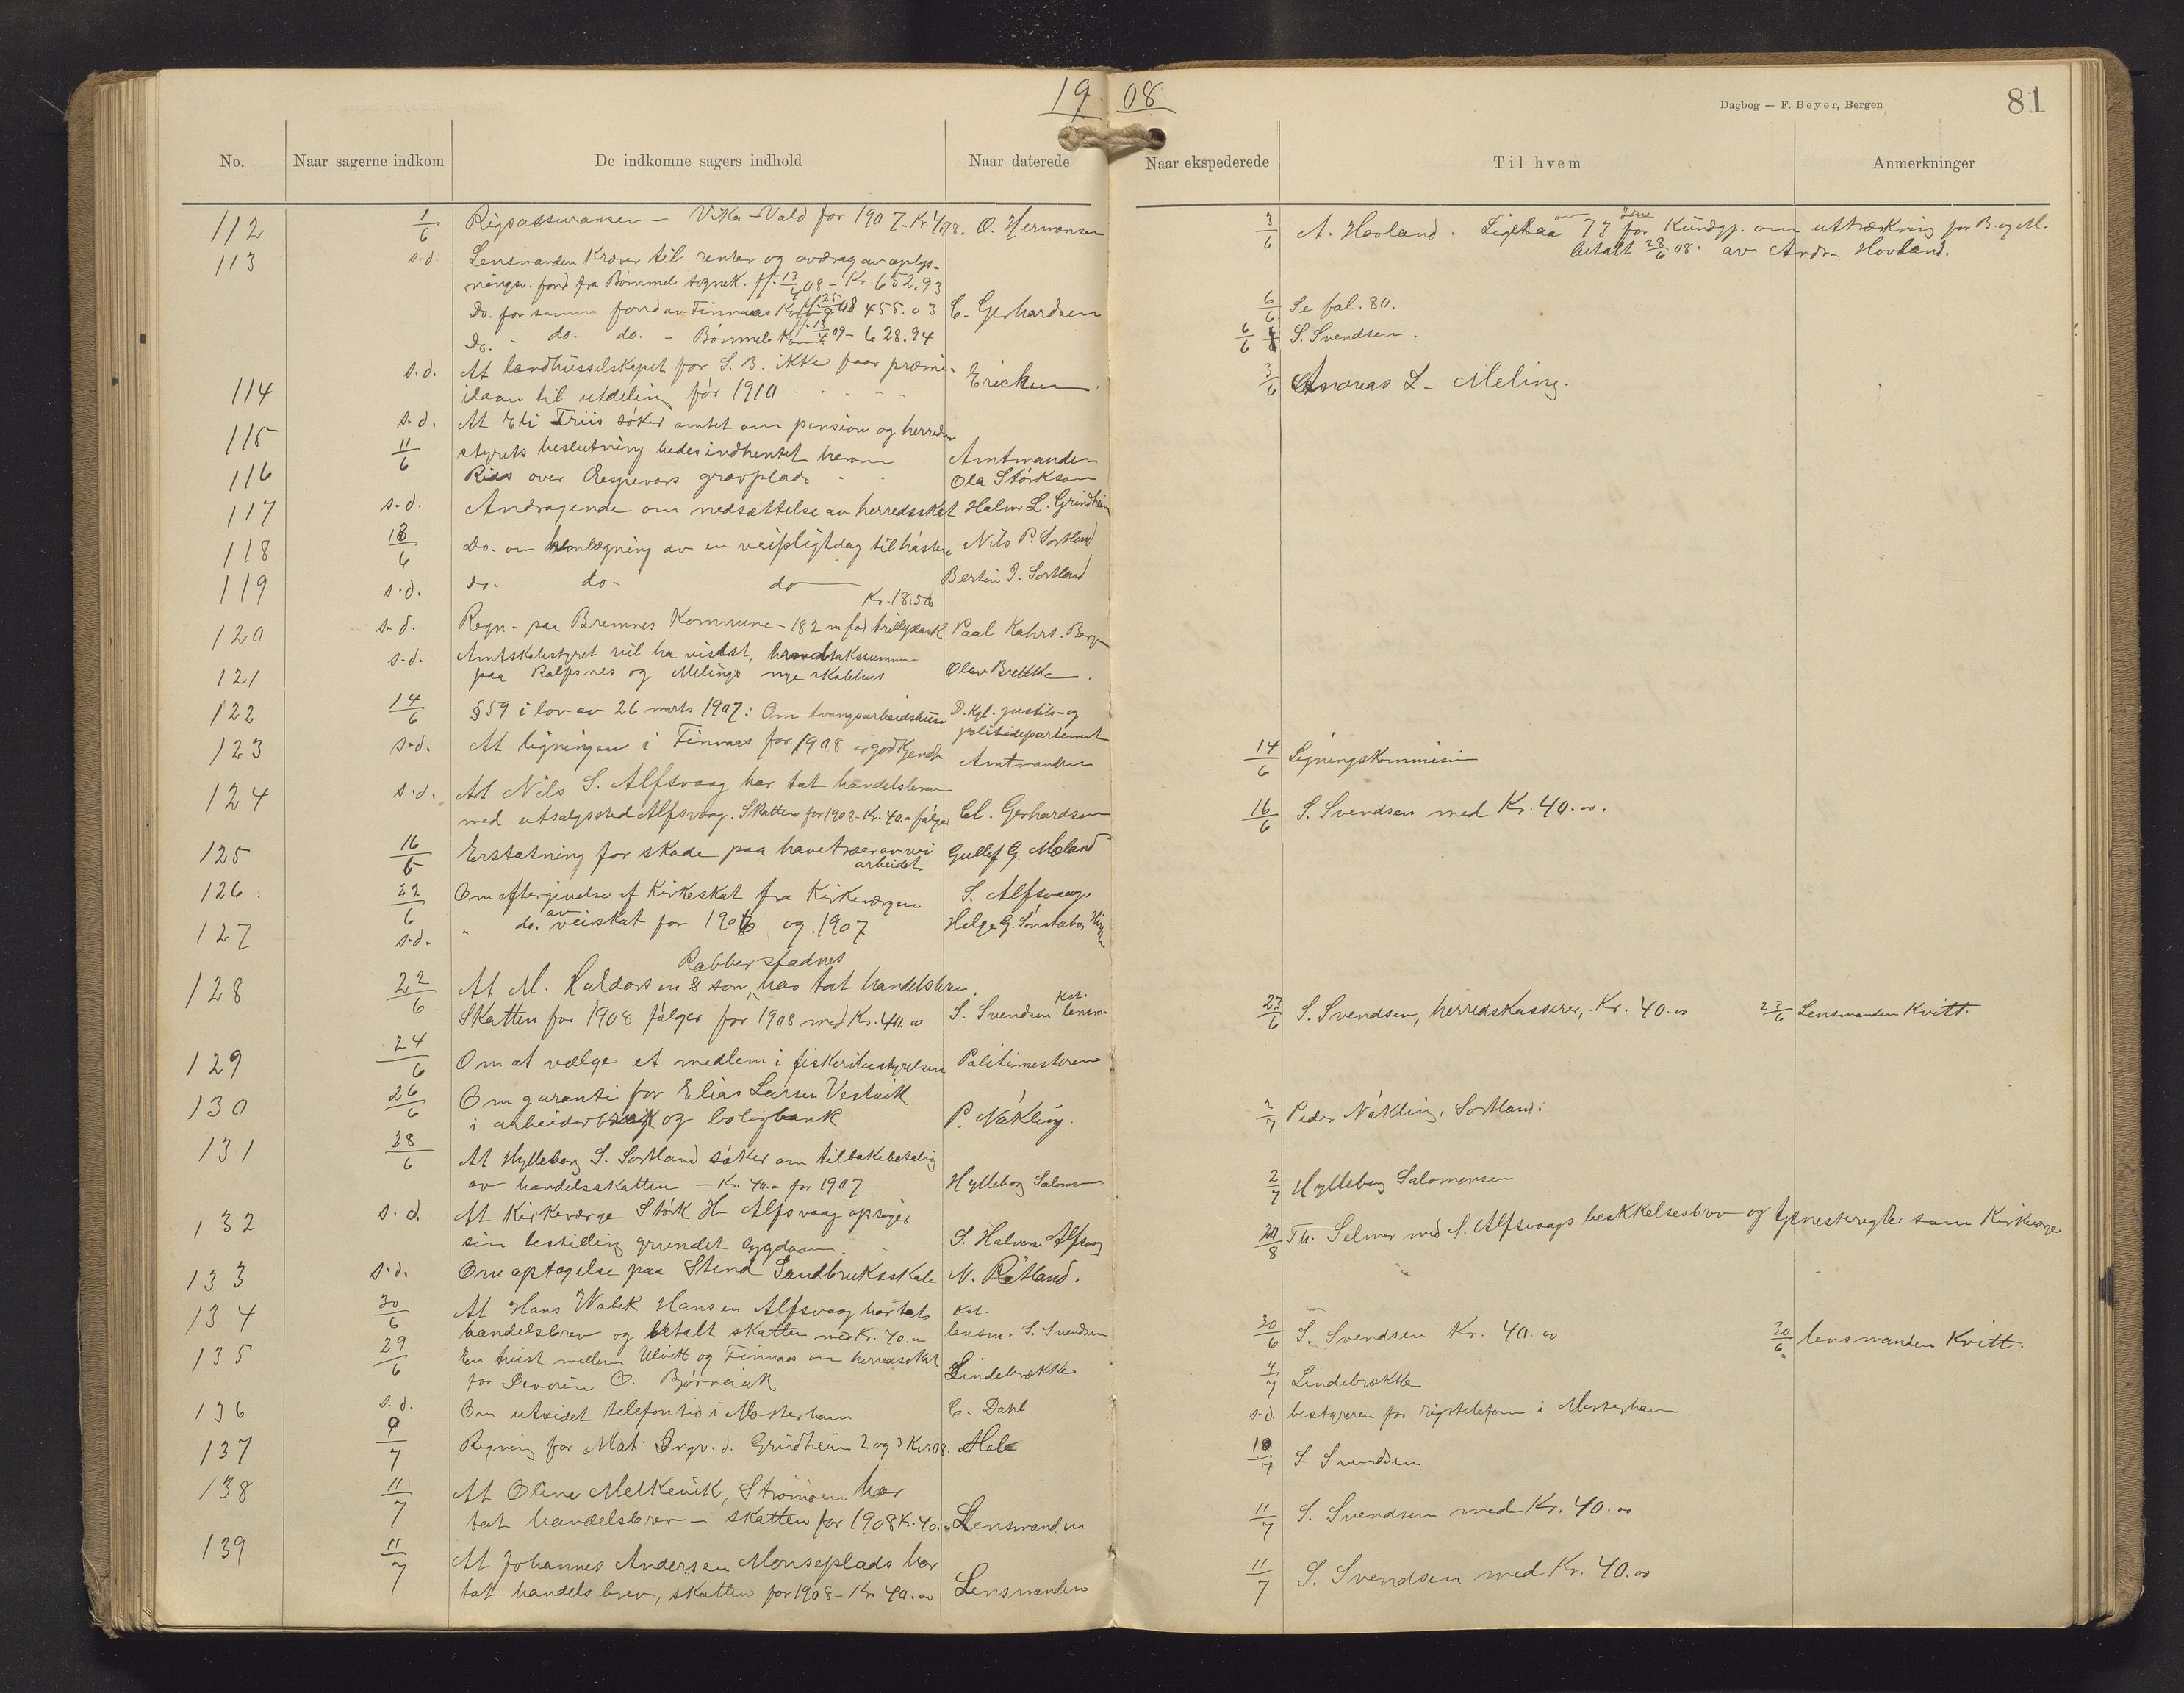 19 08
Dagbog — F. Beyer, Bergen
81
No.
Naar sagerne indkom
De indkomne sagers indhold
Naar daterede
Naar ekspederede
Til hvem
Anmerkninger
112 1/6 Rigsassuransen - Vika-Vald for 1907 - Kr. 4,98. O. Hermansen 3/6 A. Hovland. for Kundgj. om uttrækning for B. og M.
betalt 28/6 08. av Andr. Hovland.
113 s.d. Lensmanden kræver til renter og avdrag av oplys-
ningsv. fond fra Bømmel sognek. pr. 13/4 08 - Kr. 652.93
Do. for samme fond av Finnaas 455.03 C. Gerhardsen 6/6 Se fol. 80.
Do. - do. do. - Bømmel 13/4 09 - 628.94 6/6 S. Svendsen.
114 s.d. At landhusselskapet for S. B. ikke faar præmi-
ilaan til utdeling før 1910 Ericksen 3/6 Andreas L. Meling.
115 s.d. At Eli Friis søker amtet om pension og herreds-
11/6 styrets beslutning bedes indhentet herom Amtmanden
116 Riss over Espevær gravplads Ola Størkson
117 s.d. Andragende om nedsættelse av herredsskat Halvor L. Grindheim
118 13/6 Do. om henlægning av en veipligtdag til høsten Nils P. Sortland
119 s.d. do. do. do Bertin J. Sortland
Kr. 18.50
120 s.d. Regn. paa Bremnes Kommune - 182 m fod Paal Kahrs. Bergen
121 s.d. Amtskolestyret vil ha visst, brandtakssummen
paa Kalfsnes og Melings nye skolehus Olav Brekke.
122 14/6 § 59 i lov av 26 marts 1907: Om tvangsarbeidshuse D. Kgl. justits- og
politidepartement
123 s.d. At ligningen i Finnaas for 1908 er godkjendt Amtmanden 14/6 Ligningskommision
124 s.d. At Nils S. Alfsvaag har tat handelsbrev
med utsalgssted Alfsvaag. Skatten for 1908 - Kr. 40.00 følger Cl. Gerhardsen 16/6 S. Svendsen med Kr. 40.00.
125 16/6 Erstatning for skade paa havetræer av vei
arbeidet Gullef G. Mæland
126. 22/6 Om eftergivelse af Kirkeskat fra Kirkeværgen S. Alfsvaag.
127 s.d. " do. av veiskat for 1906 og 1907 Helge G. Sønstabø,
Rabbersvadnes
128 22/6 At M. Haldorsen & søn, has tat handelsbrev.
Skatten for 1908 følger for 1908 med Kr. 40.00 S. Svendsen Kst. lensm. 23/6 S. Svendsen, herredskasserer, Kr. 40.00 23/6 Lensmanden Kvitt.
129 24/6 Om at vælge et medlem i fiskeribestyrelsen Politimesteren
130 26/6 Om garanti for Elias Larsen Vestvik
i arbeiderbruk og boligbank P. Nøkling. 2/7 Peder Nøkling, Sortland.
131 28/6 At Hylleborg S. Sortland søker om tilbakebetaling
av handelsskatten - Kr. 40.00 for 1907 Hylleborg Salomonsen 2/7 Hylleborg Salomonsen
132 s.d. At Kirkeværge Størk H. Alfsvaag opsiger
sin bestilling grundet sygdom. S. Halvorsen Alfsvaag 20/8 Th. Selmer med S. Alfsvaags beskikkelsesbrev og tjenesteregler som Kirkeværge
133 s.d. Om optagelse paa Stend Landbruksskole N. Røtland.
134 30/6 At Hans Walek Hansen Alfsvaag har tat Kst.
handelsbrev og betalt skatten med Kr. 40.00 lensm. S. Svendsen 30/6 S. Svendsen Kr. 40.00 30/6 lensmanden Kvitt.
135 29/6 En tvist mellem Ulvik og Finnaas om herredsskat
for Severin O. Bjørnevik Lindebrække 4/7 Lindebrække
136 s.d. Om utvidet telefontid i Mosterhavn C. Dahl s.d. bestyreren for rigstelefonen i Mosterhavn
137 9/7 Regning for Mat. Ingv. J. Grindheim 2 og 3 Kv. 08. Hole 10/7 S. Svendsen
138 11/7 At Oline Melkevik, Strømøen har
tat handelsbrev - skatten for 1908 Kr. 40.00 Lensmanden 11/7 S. Svendsen med Kr. 40.00
139 11/7 At Johannes Andersen Monseplads har
tat handelsbrev, skatten for 1908 - Kr. 40.00 Lensmanden 11/7 S. Svendsen med Kr. 40.00